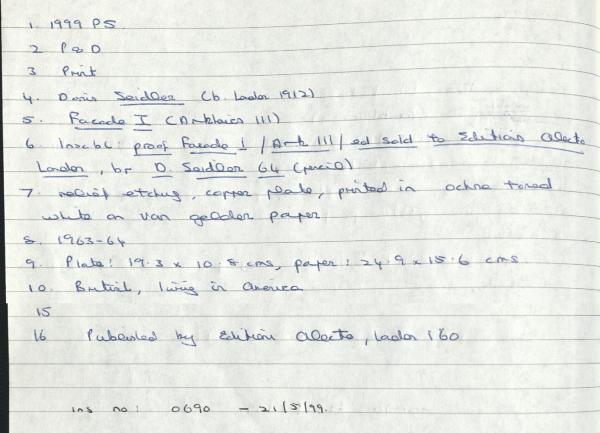 1. 1999 PS
2 P & D
3 Print
4. Doris Seidler (b. London 1912)
5. Facade I (Arktaics III)
6. Insc bl: proof Facade I / Ark III / ed sold to Editions Alecto
London, br D. Seidler 64 (pencil)
7. relief etching, copper plate, printed in ochre toned
white on van gelder paper
8. 1963-64
9. Plate: 19.3 x 10.8 cms, paper: 24.9 x 15.6 cms
10. British, living in America
15
16 Published by Edition Alecto, London
ins no: 0690 - 21/5/99.